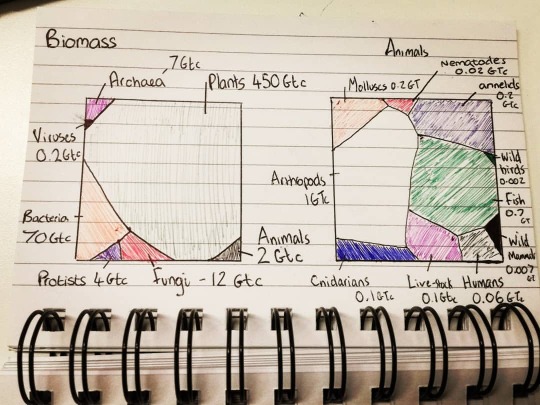 Biomass
Animals
7Gtc
Archaea
Plants 450Gtc
Viruses
0.2Gtc
Bacteria
70Gtc
Protists 4Gtc
Fungi - 12 Gtc
Animals
2 Gtc
Nematodes
0.02 GTc
Molluscs 0.2GT
annelids
0.2
GTc
Arthropods
1GTc
Wild
birds
0.002
Fish
0.7
GT
Wild
Mammals
0.007
GT
Cnidarians
0.1GTc
Live-stock
0.1GTc
Humans
0.06 GTc